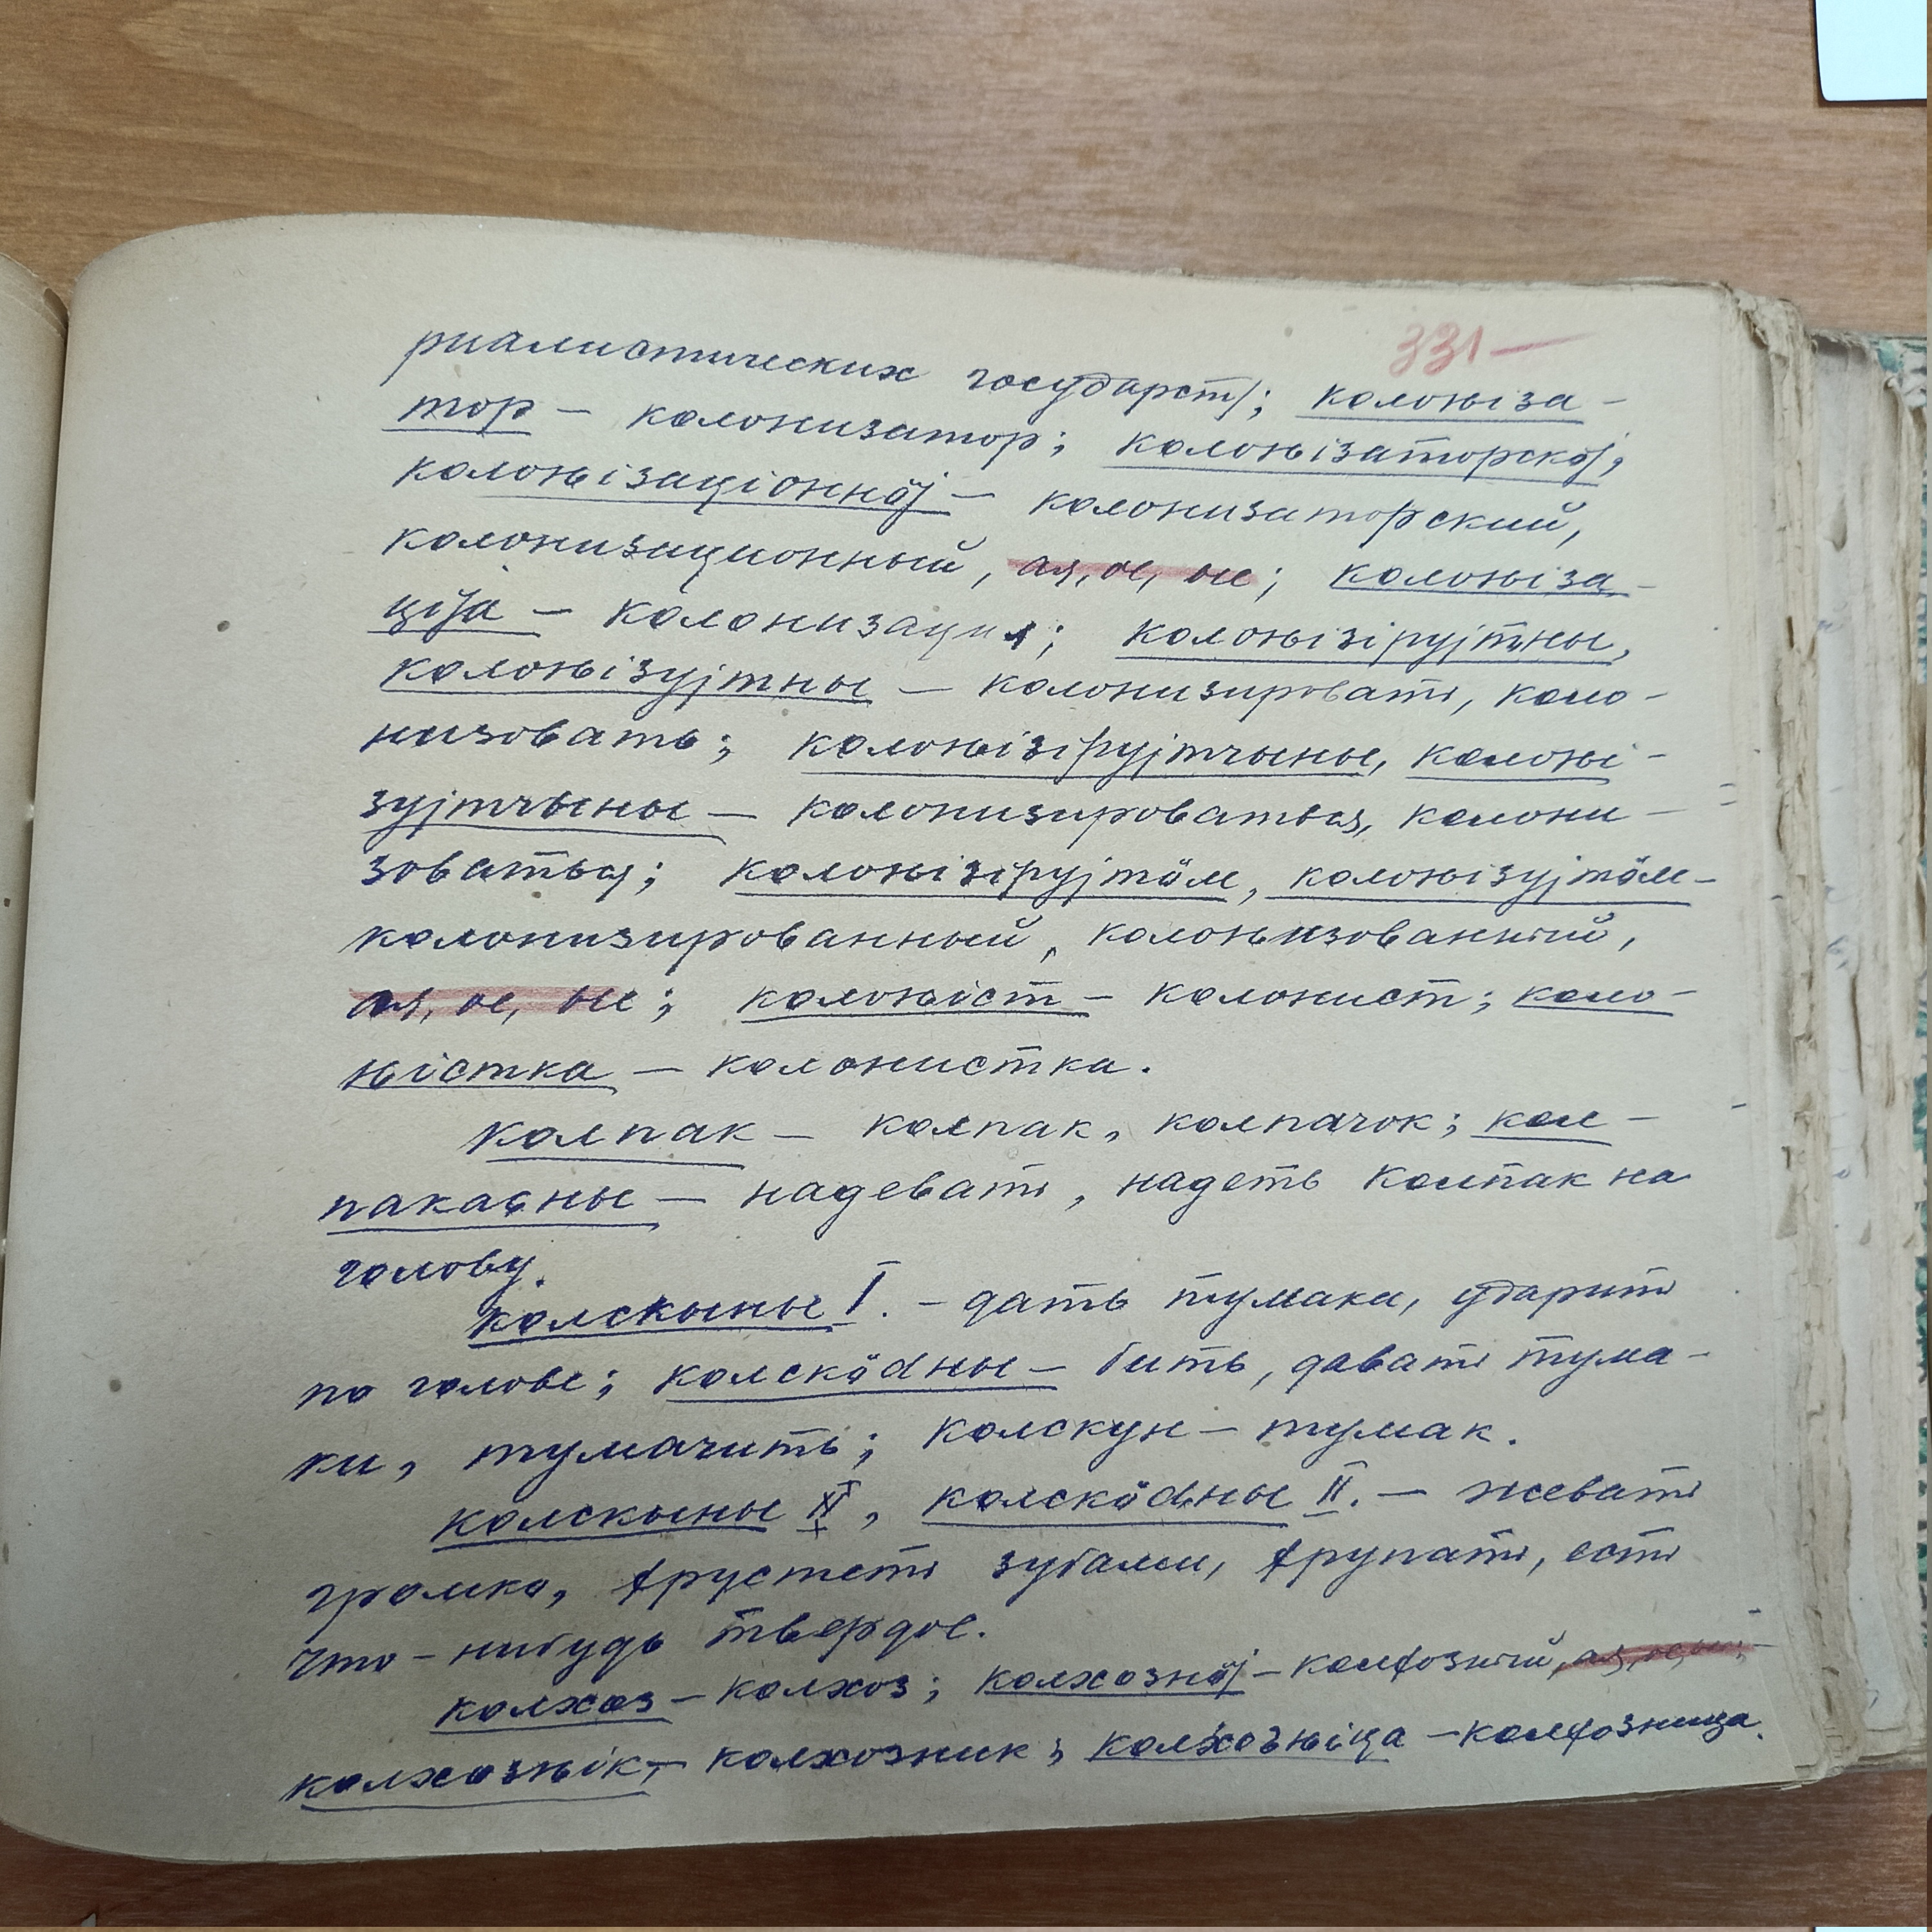 331—
риалистических государств; колоԋіза-
тор — колонизатор; колоԋізаторскӧј,
колоԋізаціоннӧј — колонизаторский,
колонизационный, ая, ое, ые; колоԋіза-
ціја — колонизация; колоԋізірујтны,
колоԋізујтны — колонизировать, коло-
низовать; колоԋізірујтчыны, колоԋі-
зујтчыны — колонизироваться, колони-
зоваться; колоԋізірујтӧм, колоԋізујтӧм-
колонизированный, колонизованный,
ая, ое, ые; колоԋіст — колонист; коло-
ԋістка — колонистка.
колпак — колпак, колпачок; кол-
пакаԍны — надевать, надеть колпак на
голову.
колскыны I. - дать тумака, ударить
по голове; колскӧdны — бить, давать тума-
ки, тумачить; колскун — тумак.
колскыны II, колскӧdны II. — жевать
громко, хрустеть зубами, хрупать, есть
что-нибудь твердое.
колхоз — колхоз; колхознӧј — колхозный, ая, ое, ые;
колхозԋік — колхозник; колхозԋіца — колхозница.